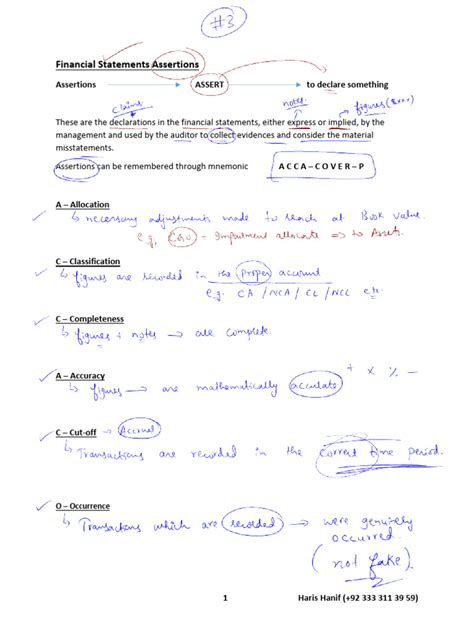 #3
Financial Statements Assertions
Assertions ASSERT to declare something
claims notes figures
These are the declarations in the financial statements, either express or implied, by the
management and used by the auditor to collect evidences and consider the material
misstatements.
Assertions can be remembered through mnemonic A C C A – C O V E R – P
A – Allocation
↳ necessary adjustments made to reach at Book value.
e.g. CGU = Impairment allocate => to Asset.
C – Classification
↳ figures are recorded in the proper account
e.g: CA / NCA / CL / NCL etc
C – Completeness
↳ figures + notes → are complete.
A – Accuracy
↳ figures → are mathematically accurate + x % -
C – Cut-off → Accrual
↳ Transactions are recorded in the correct time period.
O – Occurrence
↳ Transactions which are recorded → were genuinely
occurred
(not fake)
1 Haris Hanif (+92 333 311 39 59)